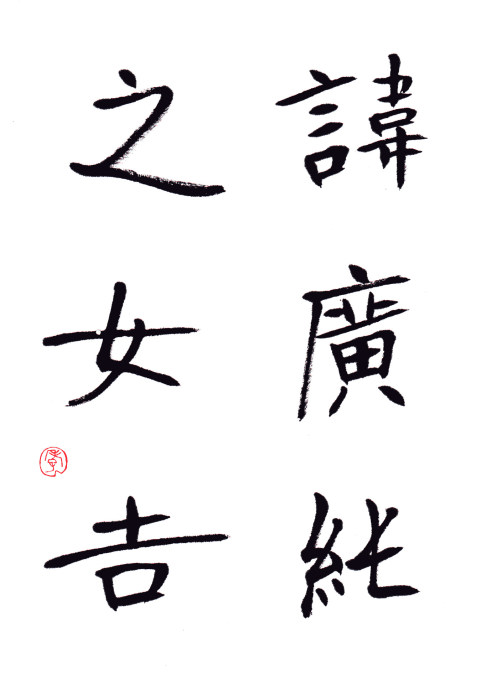 諱廣純
之女𠮷